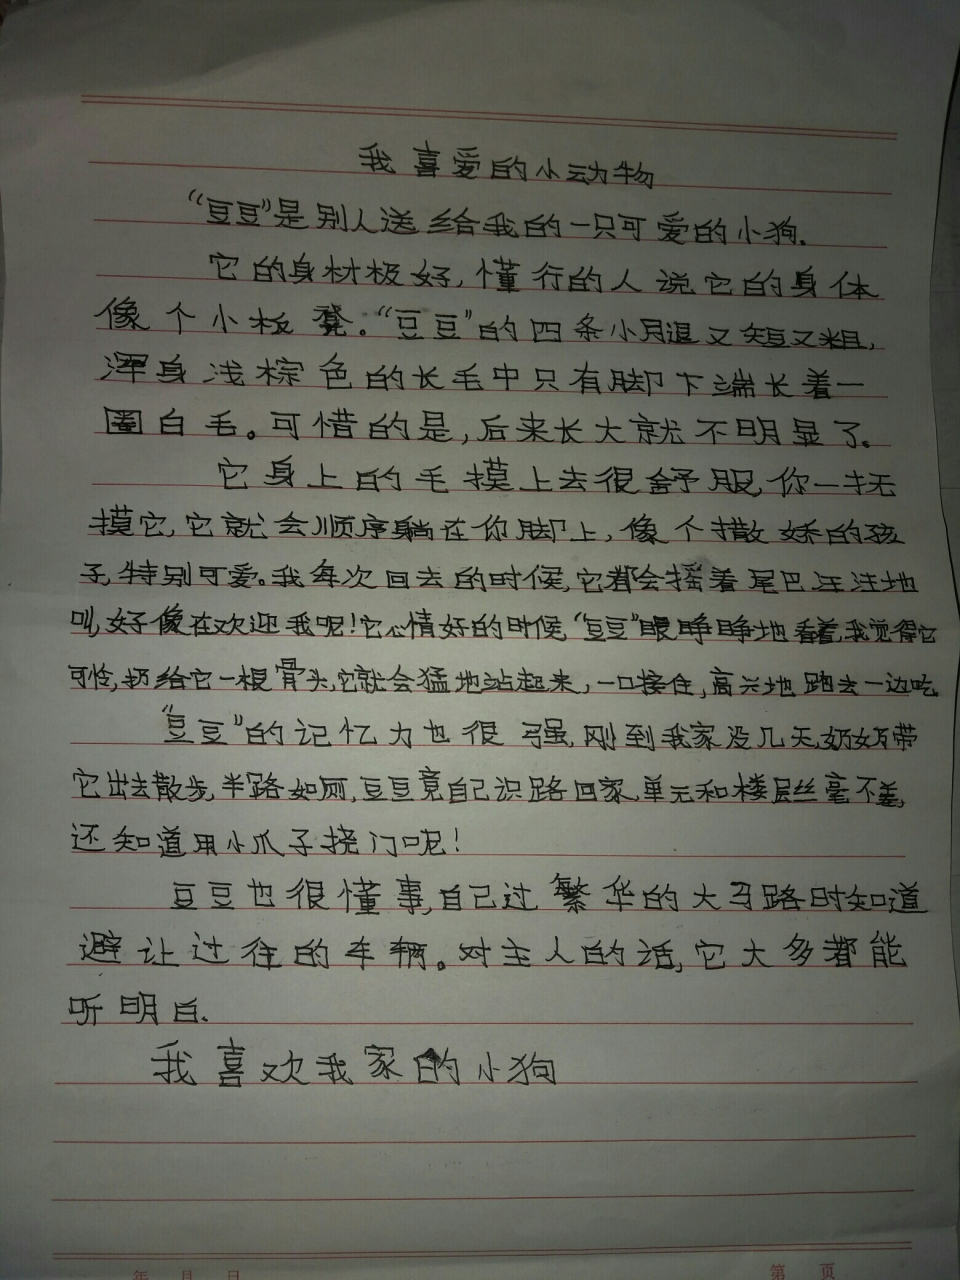 我喜爱的小动物
“豆豆”是别人送给我的一只可爱的小狗.
它的身材极好,懂行的人说它的身体
像个小板凳。“豆豆”的四条小腿又短又粗,
浑身浅棕色的长毛中只有脚下端长着一
圈白毛。可惜的是,后来长大就不明显了.
它身上的毛摸上去很舒服,你一抚
摸它,它就会顺序躺在你脚上,像个撒娇的孩
子,特别可爱。我每次回去的时候,它都会摇着尾巴汪汪地
叫,好像在欢迎我呢!它心情好的时候“豆豆”眼睁睁地看着,我觉得它
可怜,扔给它一根骨头,它就会猛地站起来,一口接住,高兴地跑去一边吃
“豆豆”的记忆力也很强,刚到我家没几天,奶奶带
它出去散步,半路如厕,豆豆竟自己识路回家,单元和楼层丝毫不差,
还知道用小爪子挠门呢!
豆豆也很懂事,自己过繁华的大马路时知道
避让过往的车辆。对主人的话,它大多都能
听明白.
我喜欢我家的小狗
年 月 日
第 页